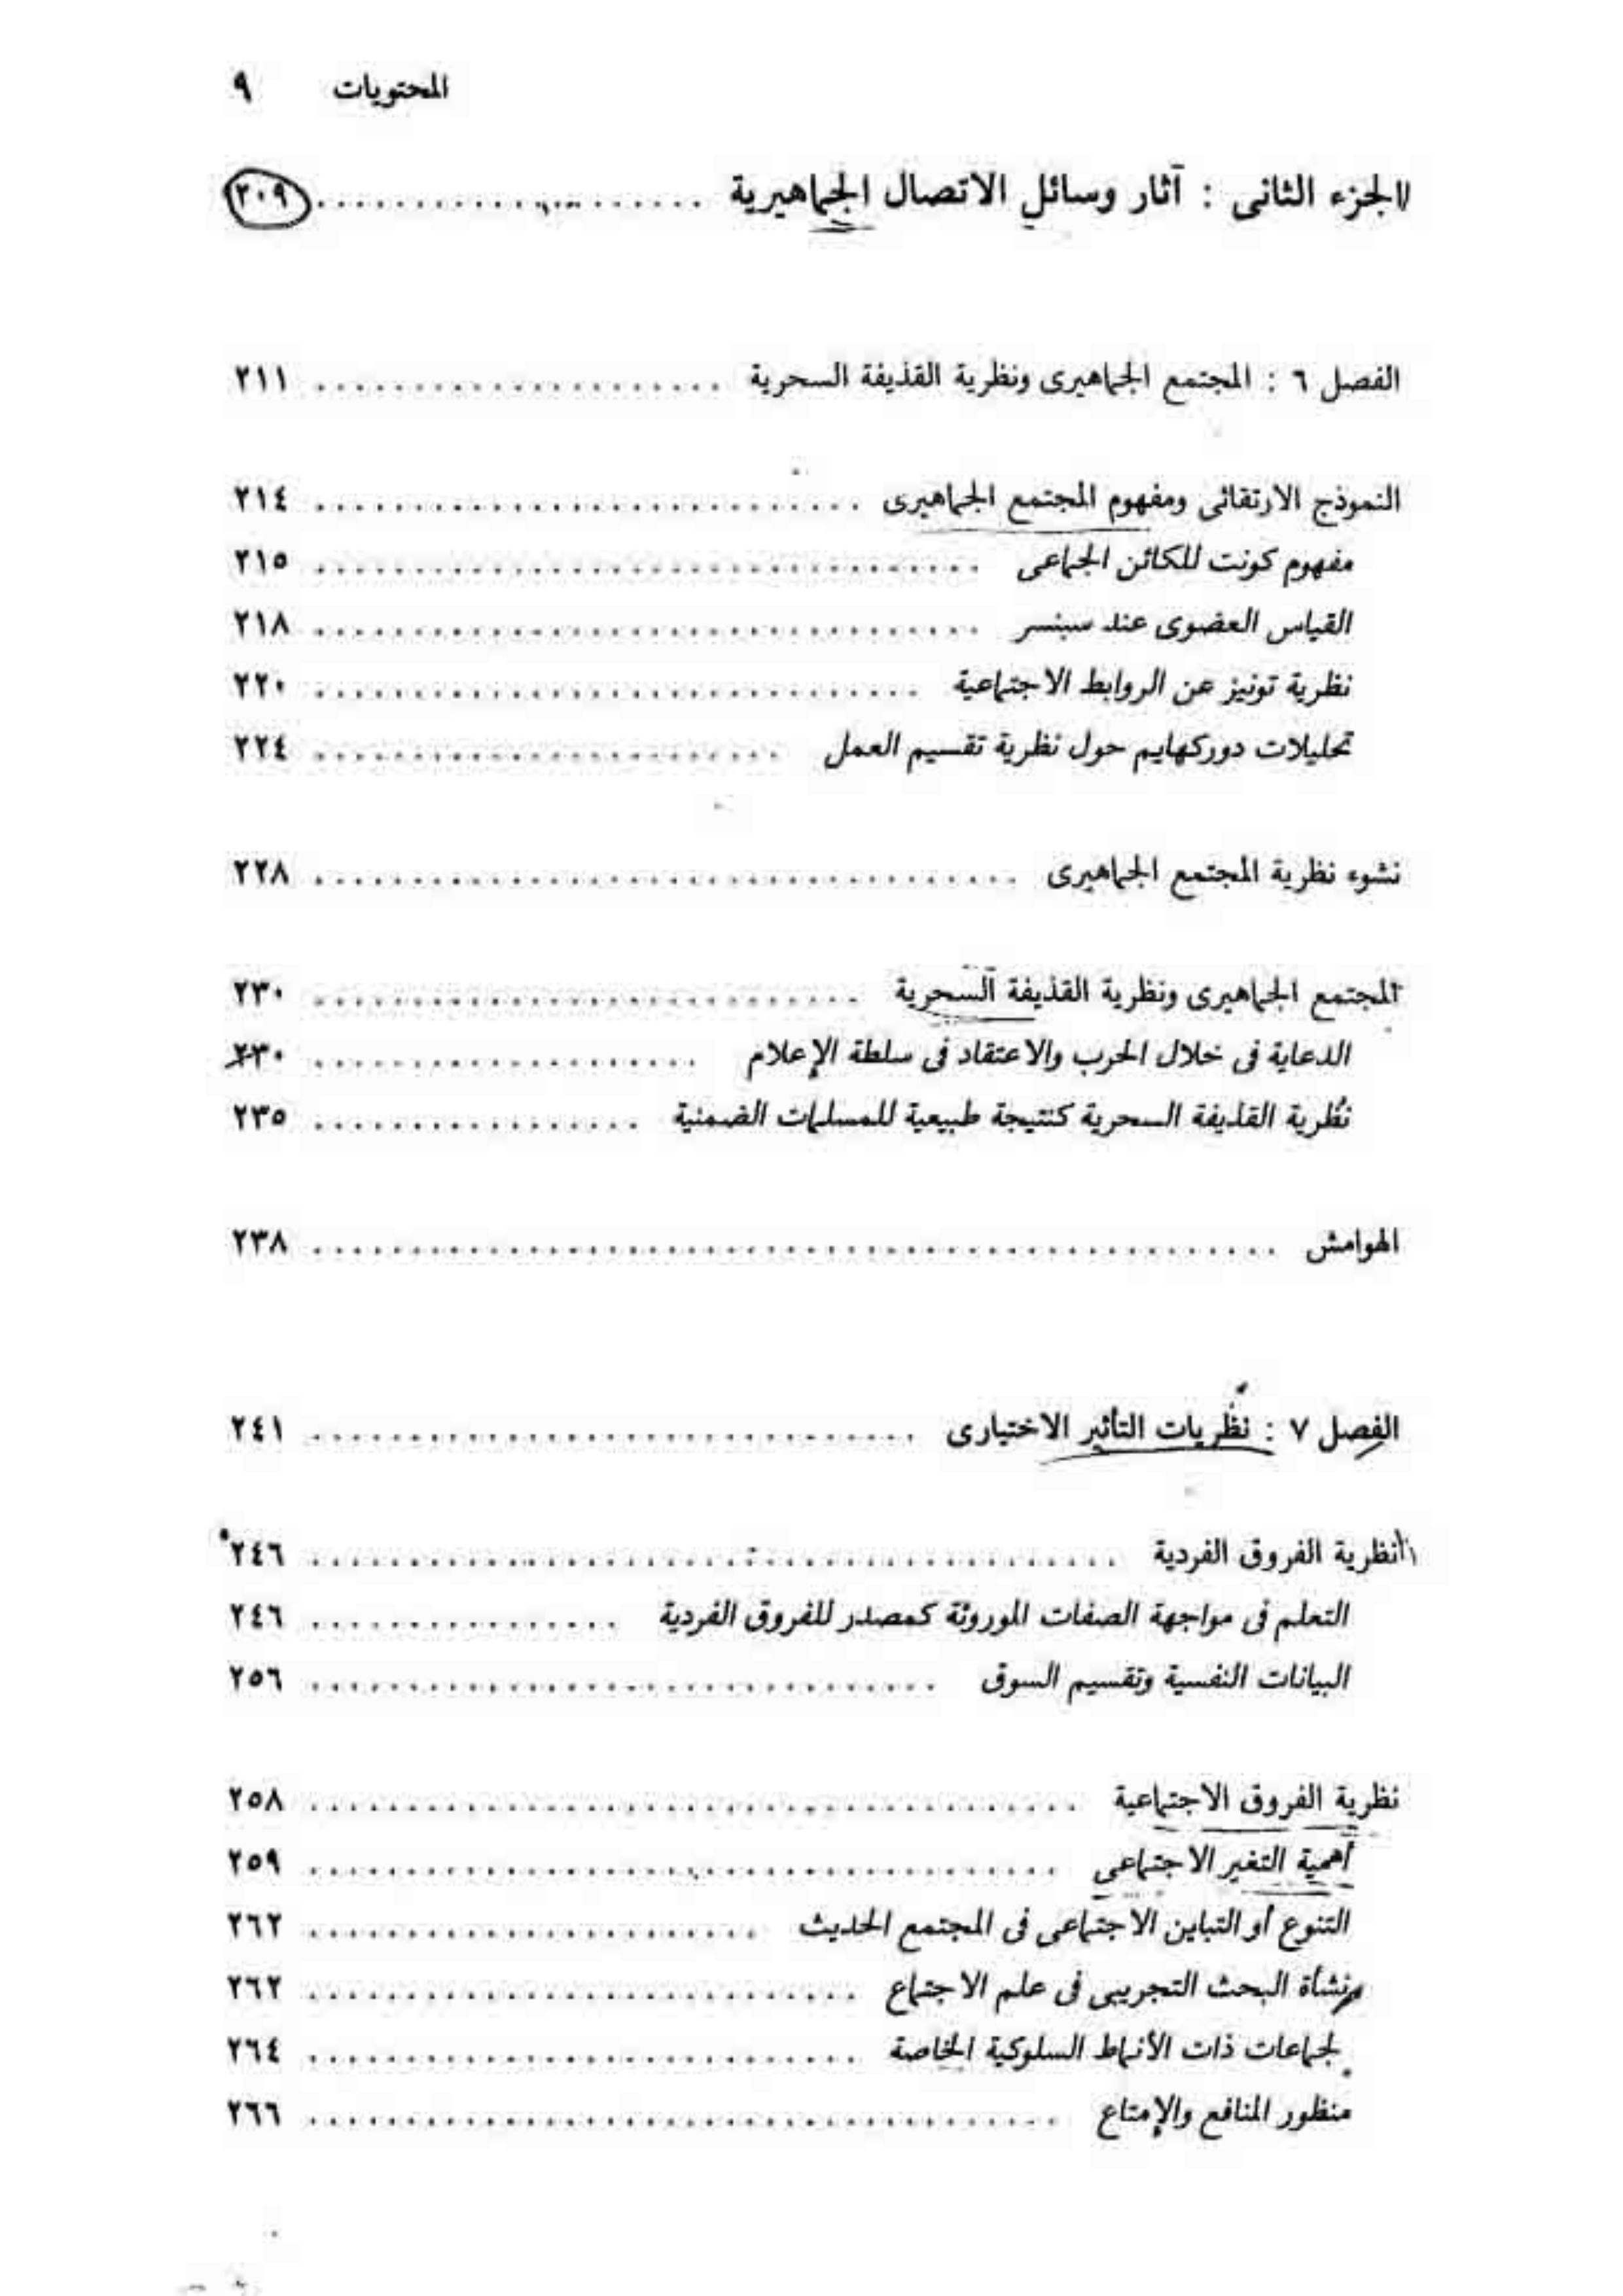 المحتويات ٩
الجزء الثانى : آثار وسائل الاتصال الجماهيرية ..................... ٢٠٩
الفصل ٦ : المجتمع الجماهيرى ونظرية القذيفة السحرية ..................... ٢١١
النموذج الارتقائى ومفهوم المجتمع الجماهيرى ..................... ٢١٤
مفهوم كونت للكائن الجماعى ..................... ٢١٥
القياس العضوى عند سبنسر ..................... ٢١٨
نظرية تونيز عن الروابط الاجتماعية ..................... ٢٢٠
تحليلات دوركهايم حول نظرية تقسيم العمل ..................... ٢٢٤
نشوء نظرية المجتمع الجماهيرى ..................... ٢٢٨
المجتمع الجماهيرى ونظرية القذيفة السحرية ..................... ٢٣٠
الدعاية فى خلال الحرب والاعتقاد فى سلطة الإعلام ..................... ٢٣٠
نظرية القذيفة السحرية كنتيجة طبيعية للمسلمات الضمنية ..................... ٢٣٥
الهوامش ..................... ٢٣٨
الفصل ٧ : نظريات التأثير الاختيارى ..................... ٢٤١
نظرية الفروق الفردية ..................... ٢٤٦
التعلم فى مواجهة الصفات الموروثة كمصدر للفروق الفردية ..................... ٢٤٦
البيانات النفسية وتقسيم السوق ..................... ٢٥٦
نظرية الفروق الاجتماعية ..................... ٢٥٨
أهمية التغير الاجتماعى ..................... ٢٥٩
التنوع أو التباين الاجتماعى فى المجتمع الحديث ..................... ٢٦٢
نشأة البحث التجريبى فى علم الاجتماع ..................... ٢٦٢
لجماعات ذات الأنماط السلوكية الخاصة ..................... ٢٦٤
منظور المنافع والإمتاع ..................... ٢٦٦